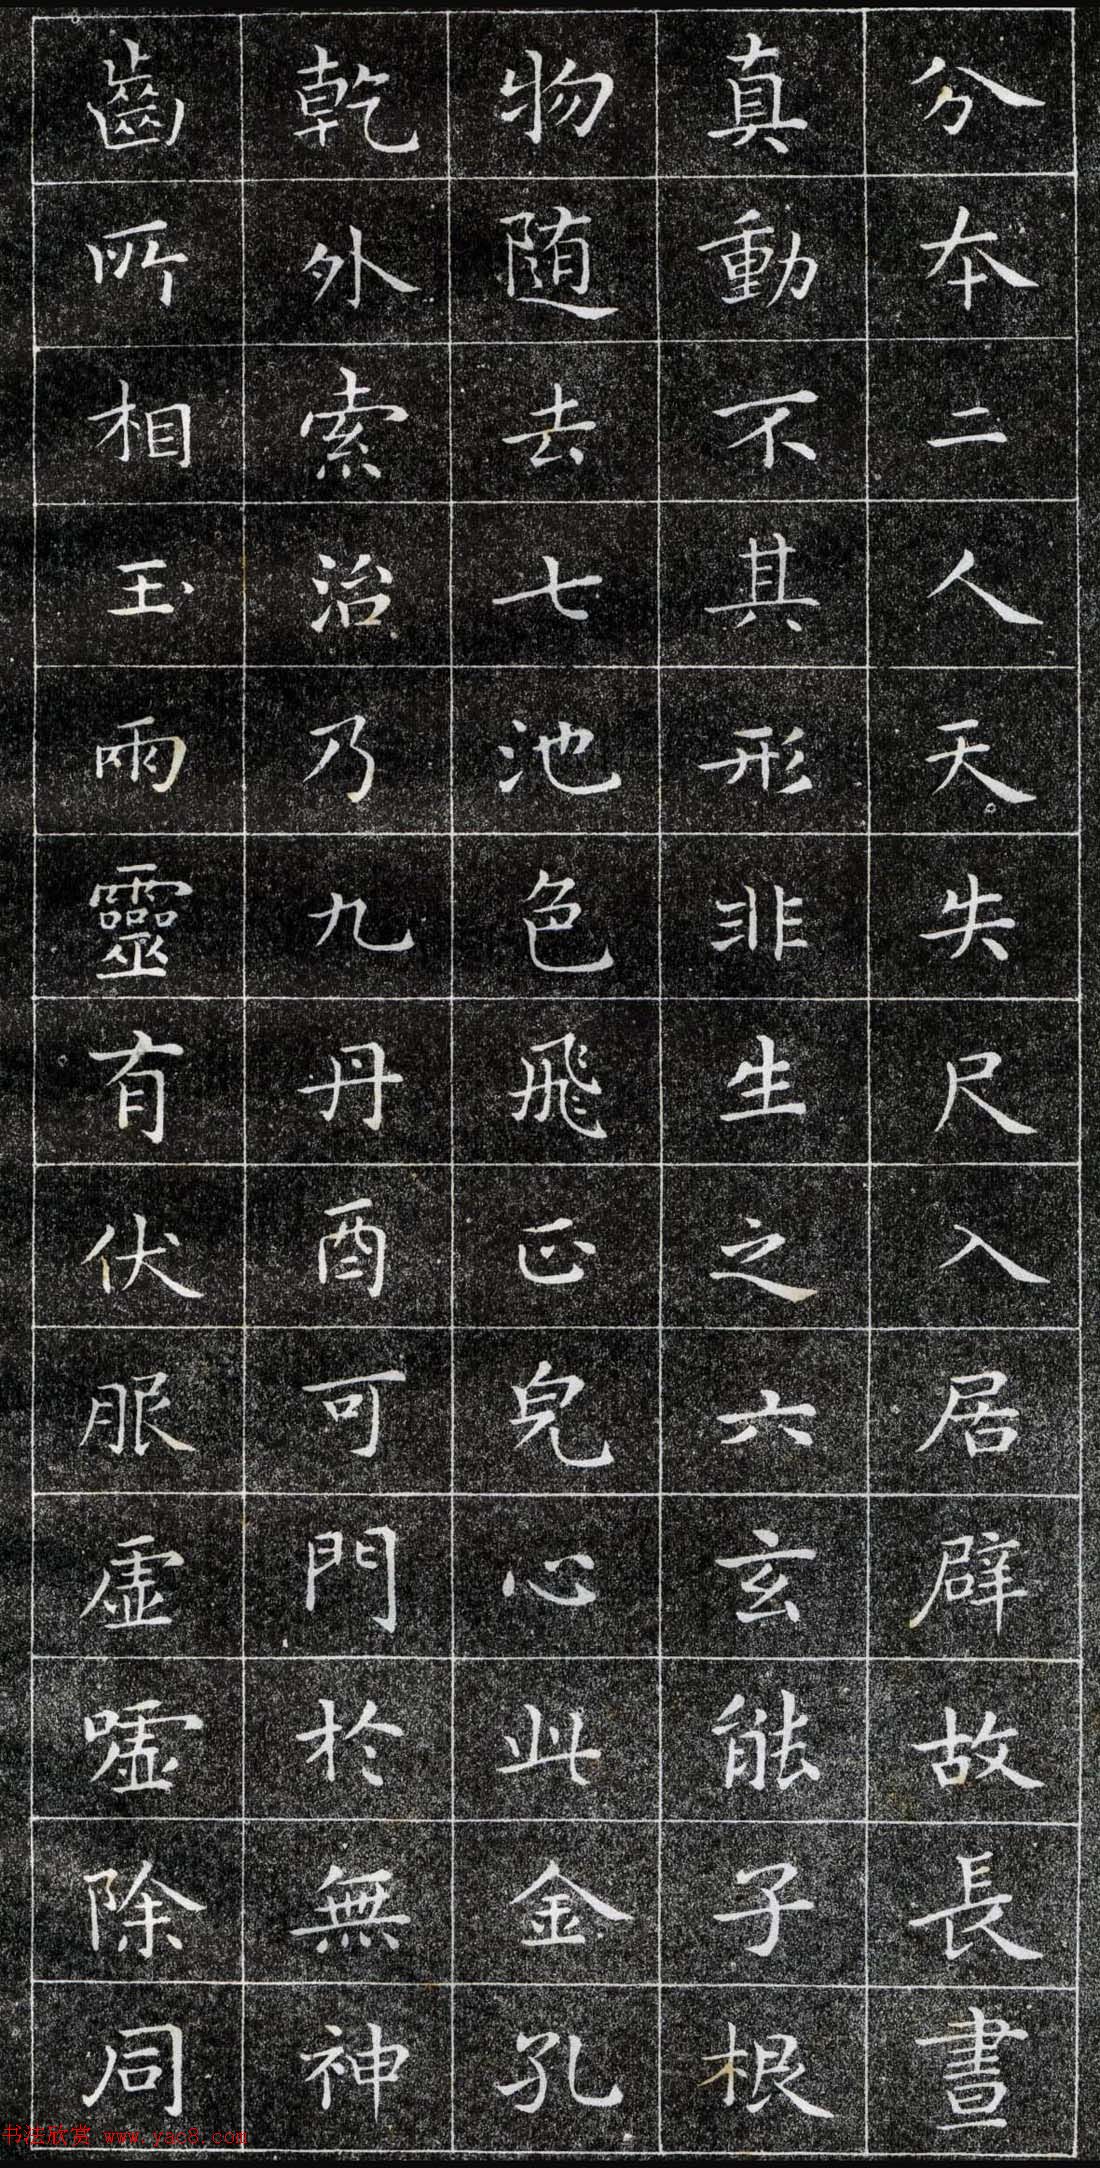 分本二人天失尺入居辟故長晝
真動不其形非生之六玄能子根
物随去七池色飛正皃心此金孔
乾外索治乃九丹酉可門於無神
齒所相玉雨靈有伏服虛嘘除同
书法欣赏 www.yac8.com